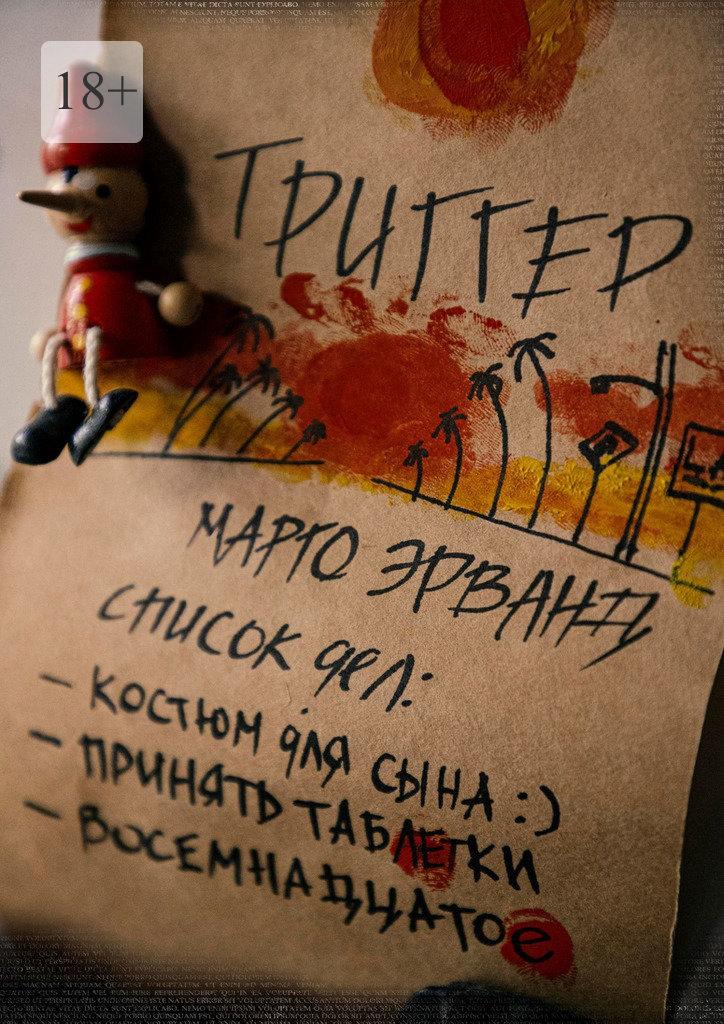 18+
ТРИГГЕР
МАРГО ЭРВАНД
СПИСОК дел:
– КОСТЮМ для СЫНА :)
– ПРИНЯТЬ ТАБЛЕТКИ
– ВОСЕМНАДЦАТОе